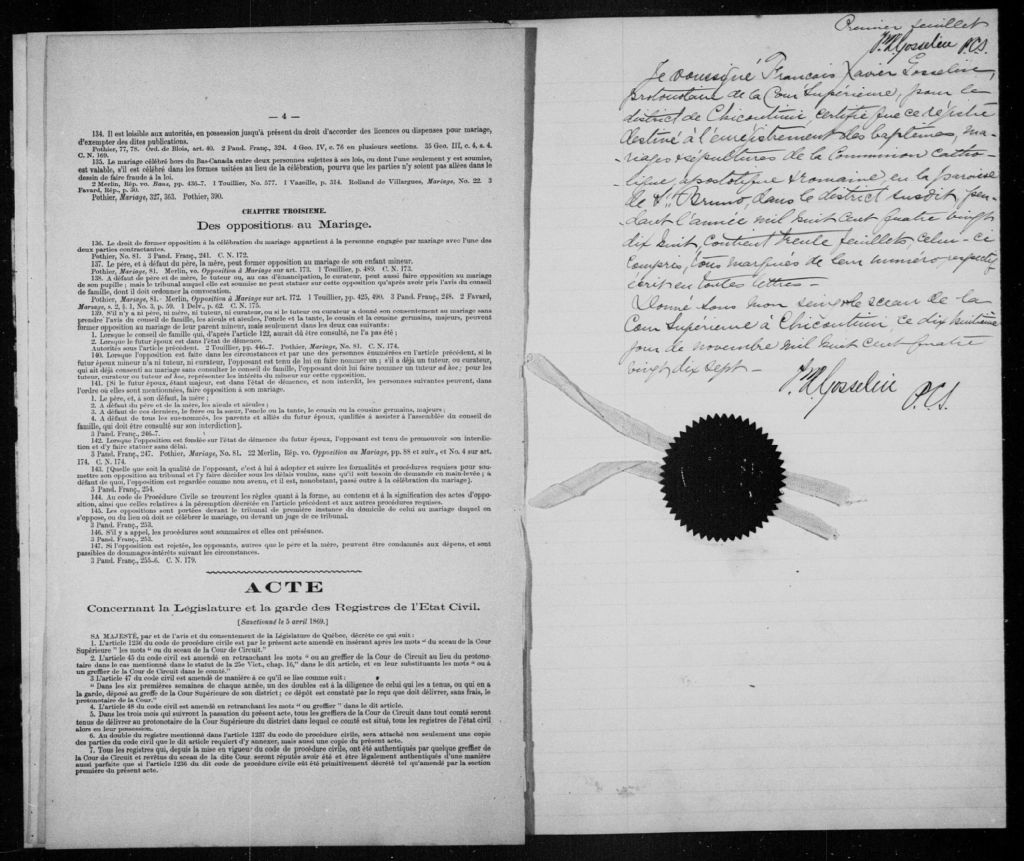 — 4 —
134. Il est loisible aux autorités, en possession jusqu'à présent du droit d'accorder des licences ou dispenses pour mariage,
d'exempter des dites publications.
Pothier, 77, 78. Ord. de Blois, art. 40. 2 Pand. Franç., 324. 4 Geo. IV, c. 76 en plusieurs sections. 35 Geo. III, c. 4, s. 4.
C. N. 169.
135. Le mariage célébré hors du Bas-Canada entre deux personnes sujettes à ses lois, ou dont l'une seulement y est soumise,
est valable, s'il est célébré dans les formes usitées au lieu de la célébration, pourvu que les parties n'y soient pas allées dans le
dessin de faire fraude à la loi.
2 Merlin, Rép. vo. Bans, pp. 436-7. 1 Touillier, No. 577. 1 Vazeille, p. 314. Rolland de Villargues, Mariage, No. 22. 3
Favard, Rép., p. 50.
Pothier, Mariage, 327, 363. Pothier, 390.
CHAPITRE TROISIEME.
Des oppositions au Mariage.
136. Le droit de former opposition à la célébration du mariage appartient à la personne engagée par mariage avec l'une des
deux parties contractantes.
Pothier, No. 81. 3 Pand. Franç., 241. C. N. 172.
137. Le père, et à défaut du père, la mère, peut former opposition au mariage de son enfant mineur.
Pothier, Mariage, 81. Merlin, vo. Opposition à Mariage sur art. 173. 1 Touillier, p. 489. C. N. 173.
138. A défaut de père et de mère, le tuteur ou, au cas d'émancipation, le curateur, peut aussi faire opposition au mariage
de son pupille; mais le tribunal auquel elle est soumise ne peut statuer sur cette opposition qu'après avoir pris l'avis du conseil
de famille, dont il doit ordonner la convocation.
Pothier, Mariage, 81. Merlin, Opposition à Mariage sur art. 172. 1 Touillier, pp. 425, 490. 3 Pand. Franç., 248. 2 Favard,
Mariage, s. 2, § 1, No. 3, p. 59. 1 Delv., p. 62. C. N. 175.
139. S'il n'y a ni père, ni mère, ni tuteur, ni curateur, ou si le tuteur ou curateur a donné son consentement au mariage sans
prendre l'avis du conseil de famille, les aïeuls et aïeules, l'oncle et la tante, le cousin et la cousine germains, majeurs, peuvent
former opposition au mariage de leur parent mineur, mais seulement dans les deux cas suivants:
1. Lorsque le conseil de famille qui, d'après l'article 122, aurait dû être consulté, ne l'a pas été;
2. Lorsque le futur époux est dans l'état de démence.
Autorités sous l'article précédent. 2 Touillier, pp. 446-7. Pothier, Mariage, No. 81. C. N. 174.
140. Lorsque l'opposition est faite dans les circonstances et par une des personnes énumérées en l'article précédent, si le
futur époux mineur n'a ni tuteur, ni curateur, l'opposant est tenu de lui en faire nommer un; s'il a déjà un tuteur, ou curateur,
qui ait déjà consenti au mariage sans consulter le conseil de famille, l'opposant doit lui faire nommer un tuteur ad hoc; pour les
tuteur, curateur ou tuteur ad hoc, représenter les intérêts du mineur sur cette opposition.
141. [Si le futur époux, étant majeur, est dans l'état de démence, et non interdit, les personnes suivantes peuvent, dans
l'ordre où elles sont mentionnées, faire opposition à son mariage.
1. Le père, et, à son défaut, la mère;
2. A défaut du père et de la mère, les aïeuls et aïeules;
3. A défaut de ces derniers, le frère ou la sœur, l'oncle ou la tante, le cousin ou la cousine germains, majeurs;
4. A défaut de tous les sus-nommés, les parents et alliés du futur époux, qualifiés à assister à l'assemblée du conseil de
famille, qui doit être consulté sur son interdiction].
3 Pand. Franç., 246-7.
142. Lorsque l'opposition est fondée sur l'état de démence du futur époux, l'opposant est tenu de promouvoir son interdic-
tion et d'y faire statuer sans délai.
3 Pand. Franç., 247. Pothier, Mariage, No. 81. 22 Merlin, Rép. vo. Opposition au Mariage, pp. 88 et suiv., et No. 4 sur art.
174. C. N. 174.
143. [Quelque soit la qualité de l'opposant, c'est à lui à adopter et suivre les formalités et procédures requises pour sou-
mettre son opposition au tribunal et l'y faire décider sous les délais voulus, sans qu'il soit besoin de demande en main-levée; à
défaut de quoi, l'opposition est regardée comme non avenue, et il est, nonobstant, passé outre à la célébration du mariage].
3 Pand. Franç., 254.
144. Au code de Procédure Civile se trouvent les règles quant à la forme, au contenu et à la signification des actes d'oppo-
sition, ainsi que celles relatives à la péremption décrétée en l'article précédent et aux autres procédures requises.
145. Les oppositions sont portées devant le tribunal de première instance du domicile de celui au mariage duquel on
s'oppose, ou du lieu où doit se célébrer le mariage, ou devant un juge de ce tribunal.
3 Pand. Franç., 253.
146. S'il y a appel, les procédures sont sommaires et elles ont préséance.
3 Pand. Franç., 253.
147. Si l'opposition est rejetée, les opposants, autres que le père et la mère, peuvent être condamnés aux dépens, et sont
passibles de dommages-intérêts suivant les circonstances.
3 Pand. Franç., 255-6. C. N. 179.
ACTE
Concernant la Législature et la garde des Registres de l'Etat Civil.
[Sanctionné le 5 avril 1869.]
SA MAJESTÉ, par et de l'avis et du consentement de la Législature de Québec, décrète ce qui suit:
1. L'article 1236 du code de procédure civile est par le présent acte amendé en insérant après les mots "du sceau de la Cour
Supérieure" les mots "ou du sceau de la Cour de Circuit."
2. L'article 45 du code civil est amendé en retranchant les mots "ou au greffier de la Cour de Circuit au lieu du protono-
taire dans le cas mentionné dans le statut de la 25e Vict., chap. 16," dans le dit article, et en leur substituants les mots "ou à
un greffier de la Cour de Circuit dans le comté."
3 L'article 47 du code civil est amendé de manière à ce qu'il se lise comme suit:
"Dans les six premières semaines de chaque année, un des doubles est à la diligence de celui qui les a tenus, ou qui en a
la garde, déposé au greffe de la Cour Supérieure de son district; ce dépôt est constaté par le reçu que doit délivrer, sans frais, le
protonotaire de la Cour."
4. L'article 48 du code civil est amendé en retranchant les mots "ou greffier" dans le dit article.
5. Dans les trois mois qui suivront la passation du présent acte, tous les greffiers de la Cour de Circuit dans tout comté seront
tenus de délivrer au protonotaire de la Cour Supérieure du district dans lequel ce comté est situé, tous les registres de l'état civil
alors en leur possession.
6. Au double du registre mentionné dans l'article 1237 du code de procédure civile, sera attaché non seulement une copie
des parties du code civil que le dit article requiert d'y annexer, mais aussi une copie du présent acte.
7. Tous les registres qui, depuis la mise en vigueur du code de procédure civile, ont été authentiqués par quelque greffier de
la Cour de Circuit et revêtus du sceau de la dite Cour, seront réputés avoir été et être légalement authentiqués d'une manière
aussi parfaite que si l'article 1236 du dit code de procédure civile eût été primitivement décrété tel qu'amendé par la section
première du présent acte.
Premier feuillet
F. X. Gosselin P.C.S.
Je soussigné François Xavier Gosselin,
protonotaire de la Cour Supérieure, pour le
district de Chicoutimi certifie que ce régistre
destiné à l'enregistrement des baptêmes, ma-
riages & sépultures de la Communion catho-
lique, apostolique & romaine en la paroisse
de St. Bruno, dans le district susdit pen-
dant l'année mil huit cent quatre vingt
dix huit, Contient trente feuillets celui-ci
compris, tous marqués de leur numéro respectif
écrit en toutes lettres—
Donné sous mon seing & le sceau de la
Cour Supérieure à Chicoutimi, ce dix huitième
jour de novembre mil huit cent quatre
vingt dix sept—
F. X. Gosselin
P.C.S.